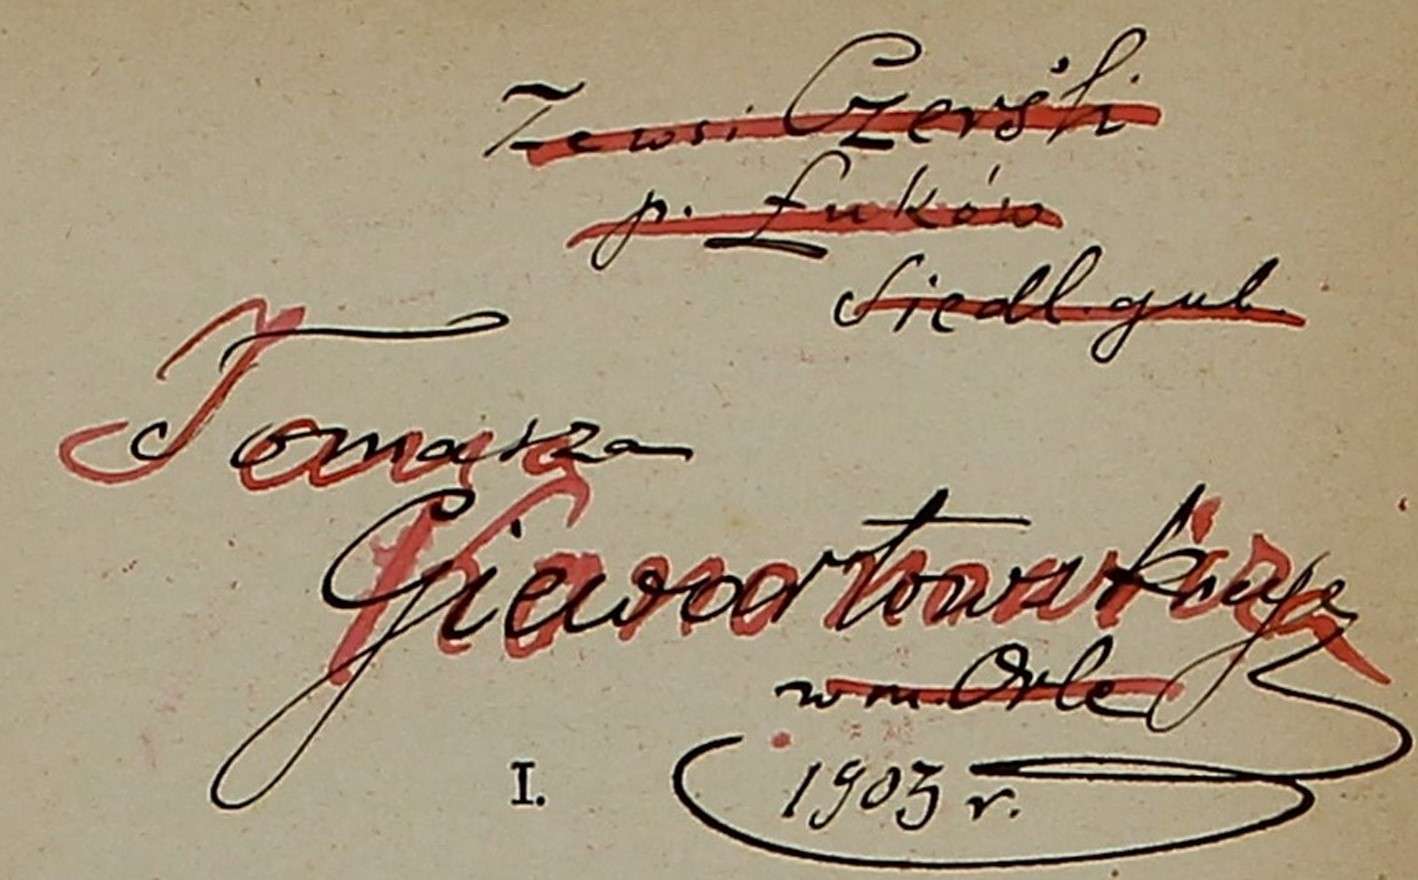 Ze wsi Czerśki
p. Łuków
Siedl. gub.
Tomasza
Giewartowskiego
w m. Orle
1903 r.
I.